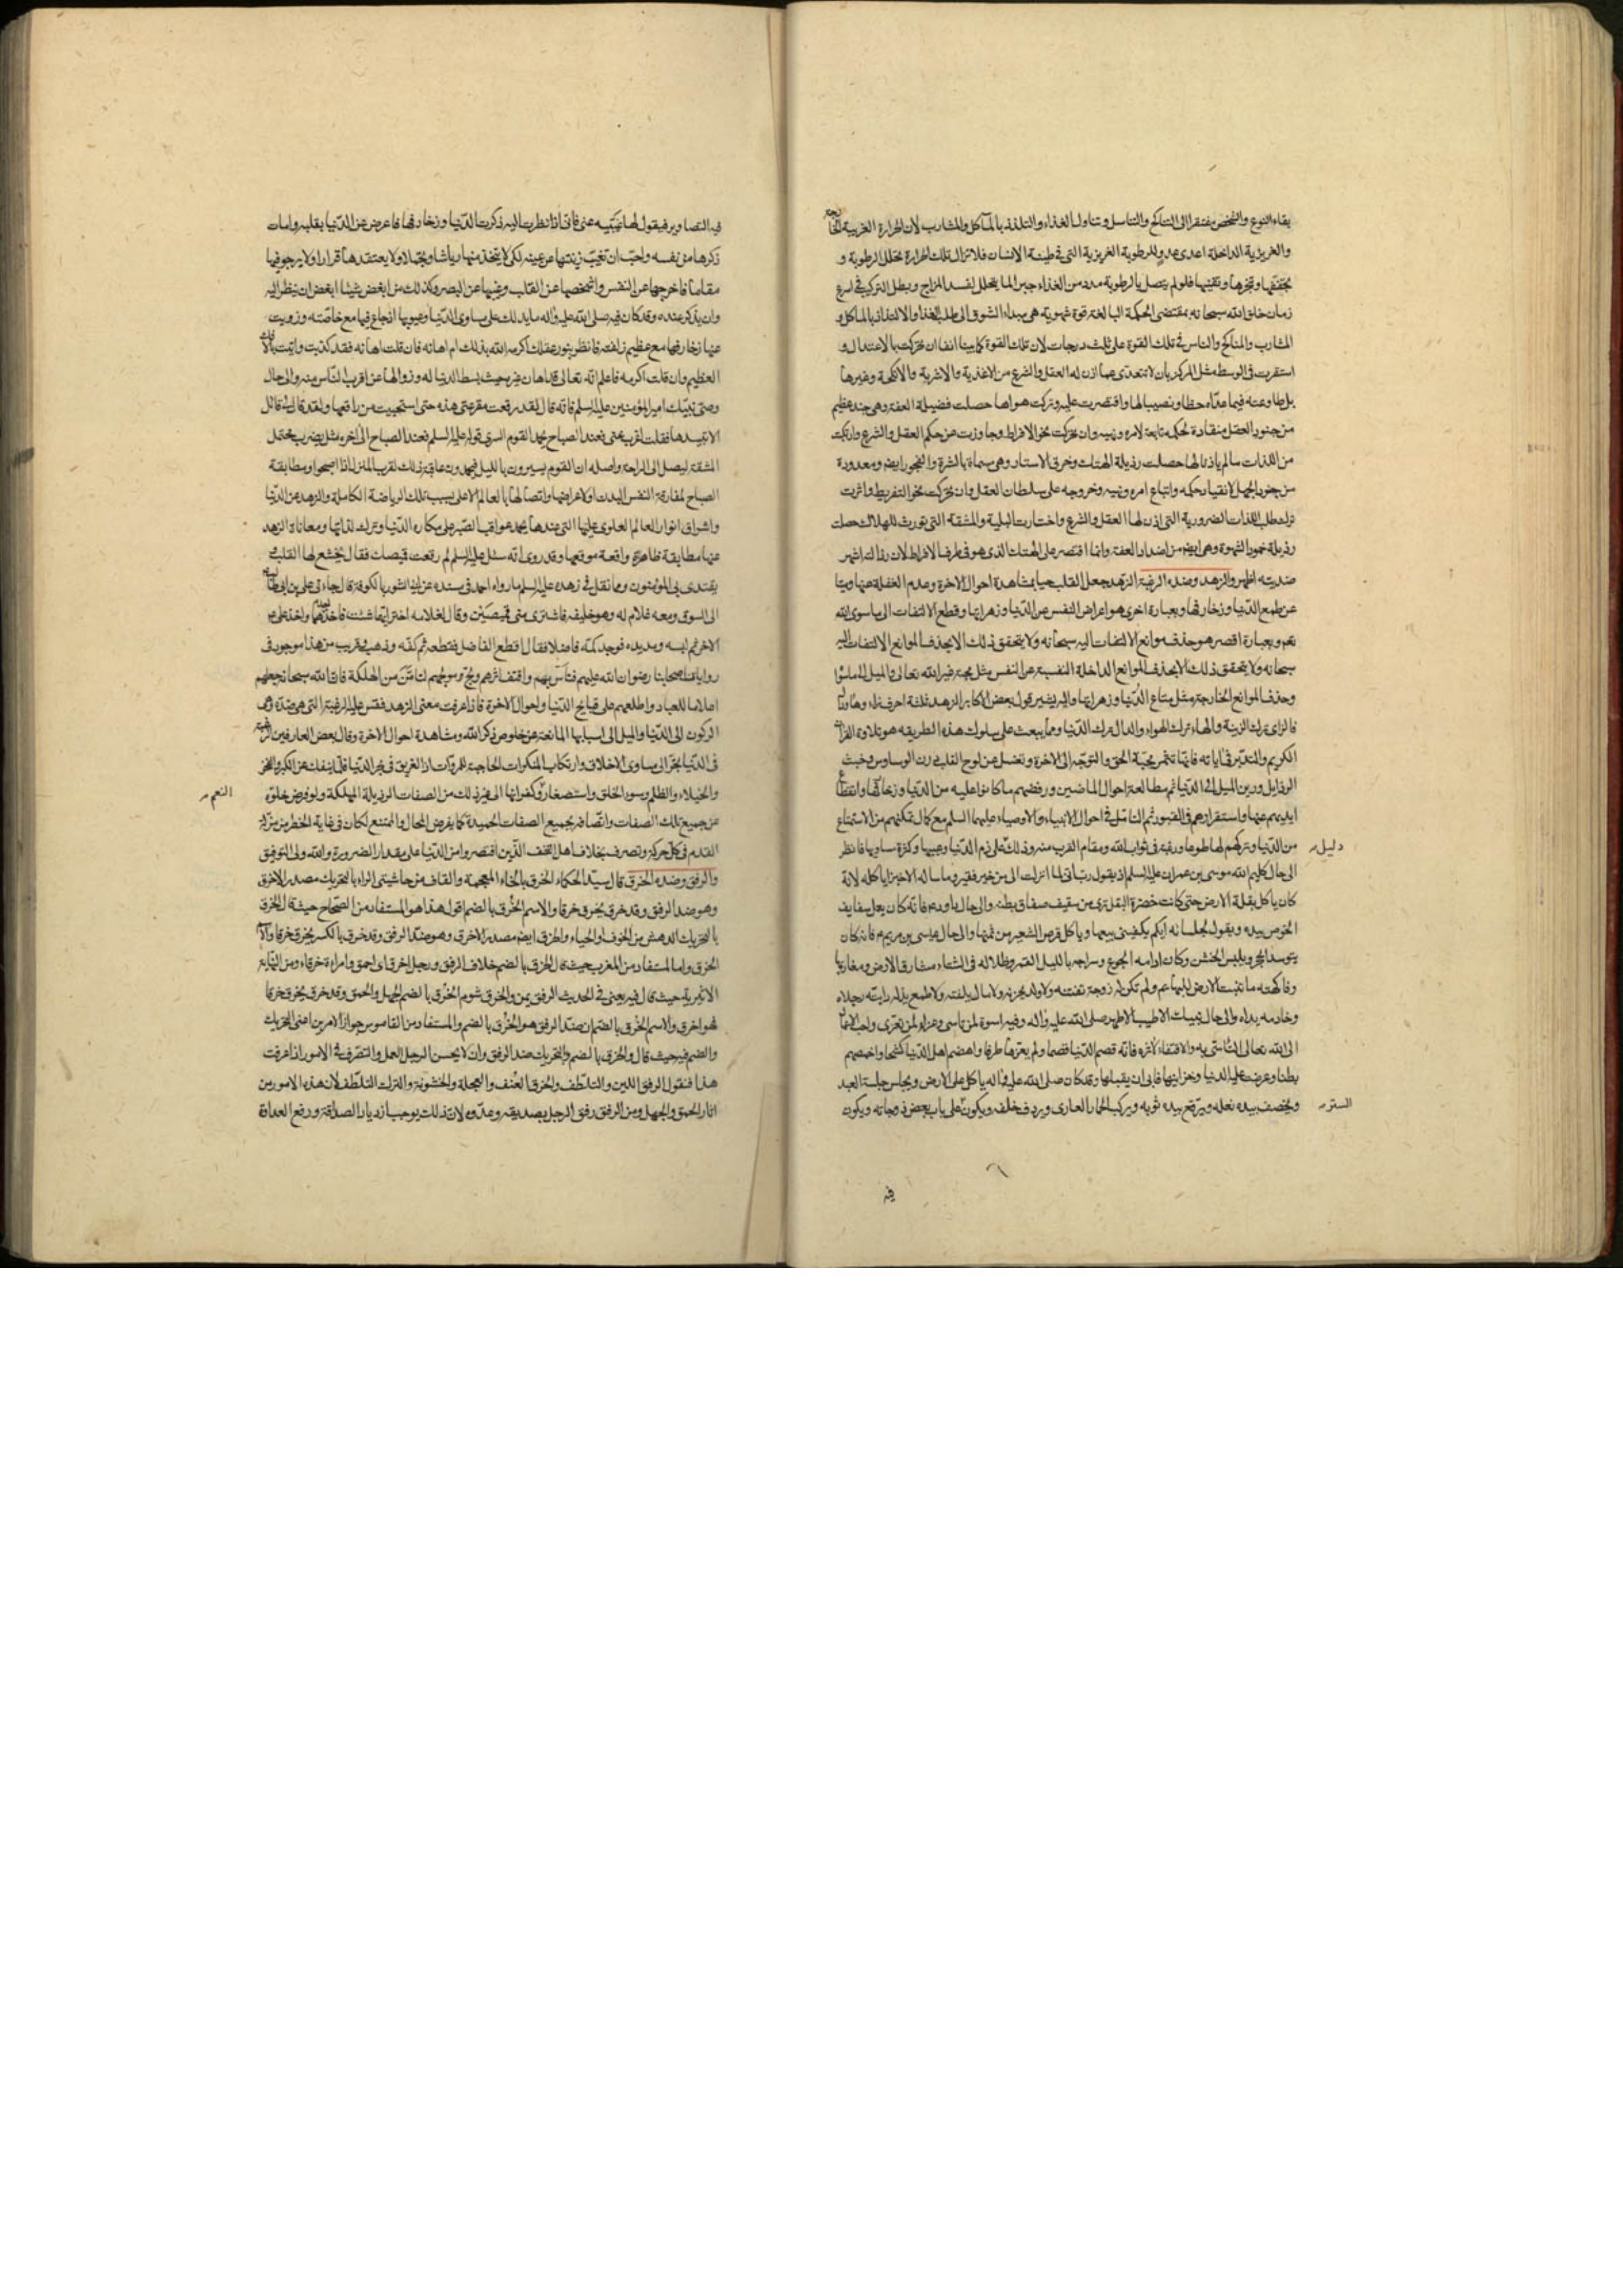 بقاء النوع والشخص مفتقرا الى التناكح والتناسل وتناول الغذاء والتلذذ بالمآكل والمشارب لان الحرارة الغريبة الخارجة
والغريزية الداخلة اعدى عدو للرطوبة الغريزية التى فى طينة الانسان فلا تزال تلك الحرارة تحلل الرطوبة و
تجففها وتبخرها وتفنيها فلو لم يتصل بالرطوبة مدد من الغذاء جبر الما يتحلل لفسد المزاج وبطل التركيب فى اسرع
زمان خلق الله سبحانه بمقتضى الحكمة البالغة قوة شهوية هى مبداء الشوق الى طلب الغذا والالتذاذ بالماكل و
المشارب والمناكح والناس فى تلك القوة على ثلث درجات لان تلك القوة كما بينا انفا ان تحركت بالاعتدال و
استقرت فى الوسط مثل المركز بان لا تتعدى عما اذن له العقل والشرع من الاغذية والاشربة والانكحة وغيرها
بل طاوعته فيما عداه حظا ونصيبا لها واقتصرت عليه وتركت هواها حصلت فضيلة العفة وهى جند عظيم
من جنود العقل منقادة لحكمه تابعة لامره ونهيه وان تحركت نحو الافراط وجاوزت عن حكم العقل والشرع وارتكبت
من اللذات ما لم ياذنا لها حصلت رذيلة الهتك وخرق الاستار وهى مسماة بالشرة والفجور ايضا ومعدودة
من جنود الجهل لانقياد حكمه واتباع امره ونهيه وخروجه على سلطان العقل وان تحركت نحو التفريط واثرت
ترك طلب اللذات الضرورية التى اذن لها العقل والشرع واختارت البلية والمشقة التى تورث للهلاك حصلت
رذيلة خمود الشهوة وهى ايضا من اضداد العفة وانما اقتصر على الهتك الذى هو فى طرف الافراط لان رذالته اشهر
ضديته اظهر والزهد وضده الرغبة الزهد جعل القلب حيا بمشاهدة احوال الاخرة وعدم الغفلة عنها وميتا
عن طمع الدنيا وزخارفها وبعبارة اخرى هو اعراض النفس عن الدنيا وزهراتها وقطع الالتفات الى ما سوى الله
نعم وبعبارة اقصر هو حذف موانع الالتفات اليه سبحانه ولا يتحقق ذلك الا بحذف الموانع الالتفات اليه
سبحانه ولا يتحقق ذلك الا بحذف الموانع الداخلة النفسية عن النفس مثل محبة غير الله تعالى والميل الى ما سواه
وحذف الموانع الخارجة مثل متاع الدنيا وزهراتها واليه يشير قول بعض الاكابر الزهد ثلثة احرف زاء وهاء ودال
فالزاى ترك الزينة والهاء ترك الهواء والدال ترك الدنيا ومما يبعث على سلوك هذه الطريقه هو تلاوة القرآن
الكريم والتدبر فى اياته فانها تثمر محبة الحق والتوجه الى الاخرة وتغسل عن لوح القلب رين الوساوس وخبث
الرذايل ورين الميل الى الدنيا ثم مطالعة احوال الماضين ورفضهم ما كانوا عليه من الدنيا وزخارفها وانقطاع
ايديهم عنها واستقرارهم فى القبور ثم التامل فى احوال الانبياء والاوصياء عليهم السلم مع كمال تمكنهم من الاستمتاع
من الدنيا وتركهم لها طوعا ورغبة فى ثواب الله ومقام القرب منه وذلك على ذم الدنيا وعيبها وكثرة مساويها فانظر
دليل
الى حال كليم الله موسى بن عمران عليه السلم اذ يقول رب انى لما انزلت الى من خير فقير وما ساله الا خبزا ياكله لانه
كان ياكل بقلة الارض حتى كانت خضرة البقل ترى من شفيف صفاق بطنه والى حال داود فانه كان يعمل سفايف
الخوص بيده ويقول لجلسائه ايكم يكفينى بيعها وياكل قرص الشعير من ثمنها والى حال عيسى بن مريم فانه كان
يتوسد الحجر ويلبس الخشن وكان ادامه الجوع وسراجه بالليل القمر وظلاله فى الشتاء مشارق الارض ومغاربها
وفاكهته ما تنبت الارض للبهائم ولم تكن له زوجة تفتنه ولا ولد يحزنه ولا مال يلفته ولا طمع يذله دابته رجلاه
وخادمه يداه والى حال نبيك الاطيب الاطهر صلى الله عليه واله وفيه اسوة لمن تاسى وعزاء لمن تعزى واحب الاعمال
الى الله تعالى التاسى به والاقتفاء لاثره فانه قضم الدنيا قضما ولم يعرها طرفا واهضم اهل الدنيا كشحا واخمصهم
بطنا وعرضت عليه الدنيا وخزاينها فابى ان يقبلها وقد كان صلى الله عليه واله ياكل على الارض ويجلس جلسة العبد
ويخصف بيده نعله ويرقع بيده ثوبه ويركب الحمار العارى ويردف خلفه ويكون على باب بعض زوجاته ويكون
الستر
فيه
فيه التصاوير فيقول لها غيبيه عنى فانى اذا نظرت اليه ذكرت الدنيا وزخارفها فاعرض عن الدنيا بقلبه وامات
ذكرها من نفسه واحب ان تغيب زينتها عن عينه لكى لا يتخذ منها رياشا وتجملا ولا يعتقدها قرارا ولا يرجو فيها
مقاما فاخرجها عن النفس واشخصها عن القلب وغيبها عن البصر وكذلك من ابغض شيئا ابغض ان ينظر اليه
وان يذكر عنده وقد كان فيه صلى الله عليه واله ما يدلك على مساوى الدنيا وعيوبها اذ جاع فيها مع خاصته وزويت
عنها زخارفها مع عظيم زلفته فانظر بنور عقلك اكرمه الله بذلك ام اهانه فان قلت اهانه فقد كذبت واتيت بالافك
العظيم وان قلت اكرمه فاعلم انه تعالى قد اهان غيره حيث بسط الدنيا له وزوالها عن اقرب الناس منه والى حال
وصى نبيك امير المؤمنين عليه السلم فانه قال لقد رقعت مدرعتى هذه حتى استحييت من راقعها ولقد قال لى قائل
الا تنبذها فقلت اغرب عنى فعند الصباح يحمد القوم السرى قوله عليه السلم فعند الصباح الى اخره مثل يضرب لمحتمل
المشقة ليصل الى الراحة واصله ان القوم يسيرون بالليل فيحمدون عاقبة ذلك لقرب المنزل اذا اصبحوا ومطابقة
الصباح لمفارقة النفس البدن او لاعراضها واتصالها بالعالم الاعلى بسبب تلك الرياضة الكاملة والزهد عن الدنيا
واشراق انوار العالم العلوى عليها التى عندها يحمد عواقب الصبر على مكاره الدنيا وترك لذاتها ومعاناة الزهد
عنها مطابقة ظاهرة واقعة موقعها وقد روى انه سئل عليه السلم لم رقعت قميصك فقال يخشع لها القلب و
يقتدى بى المؤمنون ومما نقل فى زهده عليه السلم ما رواه احمد فى مسنده عن ابى النور بالكوفة قال جاءنى على بن ابى طالب
الى السوق ومعه غلام له وهو خليفه فاشترى منى قميصين وقال لغلامه اختر ايهما شئت فاخذ احدهما واخذ على ع
الاخر ثم لبسه ومد يده فوجد كمه فاضلا فقال اقطع الفاضل فقطعه ثم كفه وذهب وقريب من هذا موجود فى
روايات اصحابنا رضوان الله عليهم فتاس بهم واقتف اثرهم ولج ولوجهم لتامن من الهلكة فان الله سبحانه جعلهم
اعلاما للعباد واطلعهم على قبايح الدنيا واحوال الاخرة فاذا عرفت معنى الزهد فقس عليه الرغبة التى هى ضده وهى
الركون الى الدنيا والميل الى اسبابها المانعة عن خلوص ذكر الله ومشاهدة احوال الاخرة وقال بعض العارفين الرغبة
فى الدنيا تجر الى مساوى الاخلاق وارتكاب المنكرات الحاجبة للمروات اذ الغريق فى بحر الدنيا قل ما ينفك عن الكبر والفخر
والخيلاء والظلم وسوء الخلق واستصغار وكفرانها الى غير ذلك من الصفات الرذيلة المهلكة ولو فرض خلوه
النعم
عن جميع تلك الصفات واتصافه بجميع الصفات الحميدة كما يفرض المحال والممتنع لكان فى غاية الخطر من مزلة
القدم فى كل حركة وتصرف بخلاف اهل التخف الذين اقتصروا من الدنيا على مقدار الضرورة والله ولى التوفيق
والرفق وضده الخرق قال سيد الحكماء الخرق بالخاء المعجمة والقاف من حاشيتى الراء بالتحريك مصدر الاخرق
وهو ضد الرفق وقد خرق يخرق خرقا والاسم الخرق بالضم اقول هذا هو المستفاد من الصحاح حيث قال الخرق
بالتحريك الدهش من الخوف او الحياء والخرق ايضا مصدر الاخرق وهو ضد الرفق وقد خرق بالكسر يخرق خرقا والاسم
الخرق واما المستفاد من المغرب حيث قال الخرق بالضم خلاف الرفق ورجل اخرق اى احمق وامراءة خرقاء ومن النهاية
الاثيرية حيث قال فيه يعنى فى الحديث الرفق يمن والخرق شوم الخرق بالضم الجهل والحمق وقد خرق يخرق خرقا
فهو اخرق والاسم الخرق بالضم ان ضد الرفق هو الخرق بالضم والمستفاد من القاموس جواز الامرين اعنى التحريك
والضم فيه حيث قال والخرق بالضم والتحريك ضد الرفق وان لا يحسن الرجل العمل والتصرف فى الامور اذا عرفت
هذا فنقول الرفق اللين والتلطف والخرق العنف والعجلة والخشونة والترك التلطف لان هذه الامور من
اثار الحمق والجهل ومن الرفق رفق الرجل بصديقه وعدوه لان ذلك يوجب ازدياد الصداقة ورفع العداوة